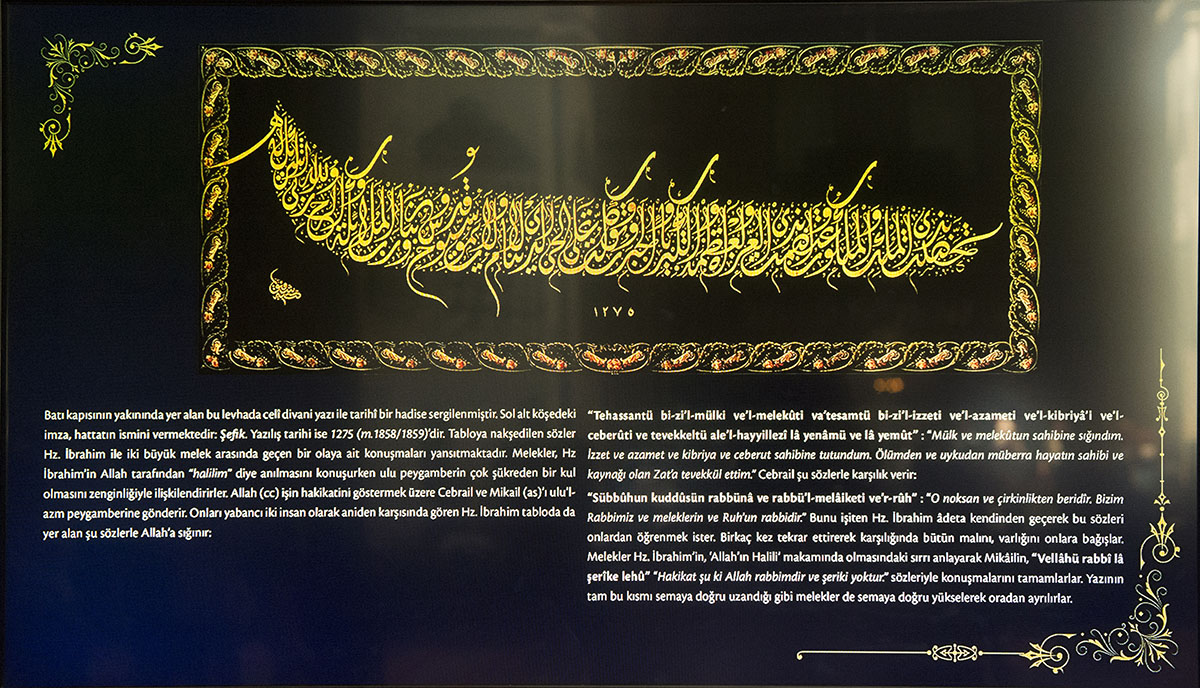 ١٢٧٥
Batı kapısının yakınında yer alan bu levhada celî divani yazı ile tarihî bir hadise sergilenmiştir. Sol alt köşedeki
imza, hattatın ismini vermektedir: Şefik. Yazılış tarihi ise 1275 (m.1858/1859)'dir. Tabloya nakşedilen sözler
Hz. İbrahim ile iki büyük melek arasında geçen bir olaya ait konuşmaları yansıtmaktadır. Melekler, Hz
İbrahim'in Allah tarafından "halilim" diye anılmasını konuşurken ulu peygamberin çok şükreden bir kul
olmasını zenginliğiyle ilişkilendirirler. Allah (cc) işin hakikatini göstermek üzere Cebrail ve Mikail (as)'ı ulu'l-
azm peygamberine gönderir. Onları yabancı iki insan olarak aniden karşısında gören Hz. İbrahim tabloda da
yer alan şu sözlerle Allah'a sığınır:
"Tehassantü bi-zi'l-mülki ve'l-melekûti va'tesamtü bi-zi'l-izzeti ve'l-azameti ve'l-kibriyâ'i ve'l-
ceberûti ve tevekkeltü ale'l-hayyillezî lâ yenâmü ve lâ yemût" : "Mülk ve melekûtun sahibine sığındım.
İzzet ve azamet ve kibriya ve ceberut sahibine tutundum. Ölümden ve uykudan müberra hayatın sahibi ve
kaynağı olan Zat'a tevekkül ettim." Cebrail şu sözlerle karşılık verir:
"Sübbûhun kuddûsün rabbünâ ve rabbü'l-melâiketi ve'r-rûh" : "O noksan ve çirkinlikten beridir. Bizim
Rabbimiz ve meleklerin ve Ruh'un rabbidir." Bunu işiten Hz. İbrahim âdeta kendinden geçerek bu sözleri
onlardan öğrenmek ister. Birkaç kez tekrar ettirerek karşılığında bütün malını, varlığını onlara bağışlar.
Melekler Hz. İbrahim'in, 'Allah'ın Halili' makamında olmasındaki sırrı anlayarak Mikâilin, "Vellâhü rabbî lâ
şerîke lehû" "Hakikat şu ki Allah rabbimdir ve şeriki yoktur." sözleriyle konuşmalarını tamamlarlar. Yazının
tam bu kısmı semaya doğru uzandığı gibi melekler de semaya doğru yükselerek oradan ayrılırlar.